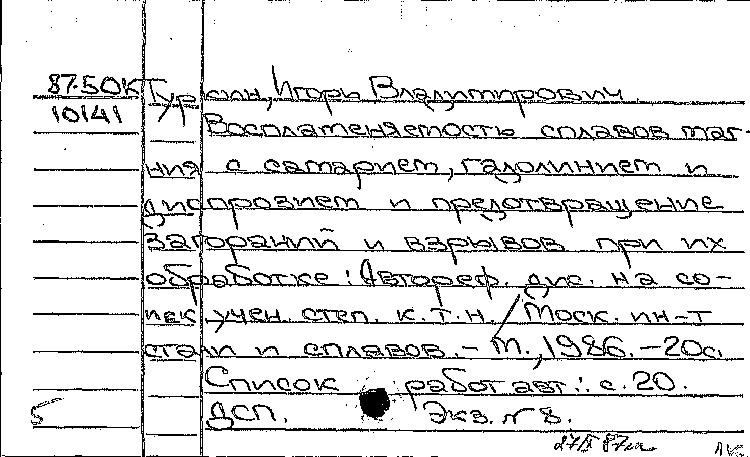 87-50К Туркин, Игорь Владимирович
10141
Воспламеняемость сплавов маг-
ния с самарием, гадолинием и
диспрозием и предотвращение
загораний и взрывов при их
обработке: Автореф. дис. на со-
иск. учен. степ. к.т.н. / Моск. ин-т
стали и сплавов. - М., 1986. - 20с.
Список работ авт.: с. 20.
5 ДСП. Экз. № 8.